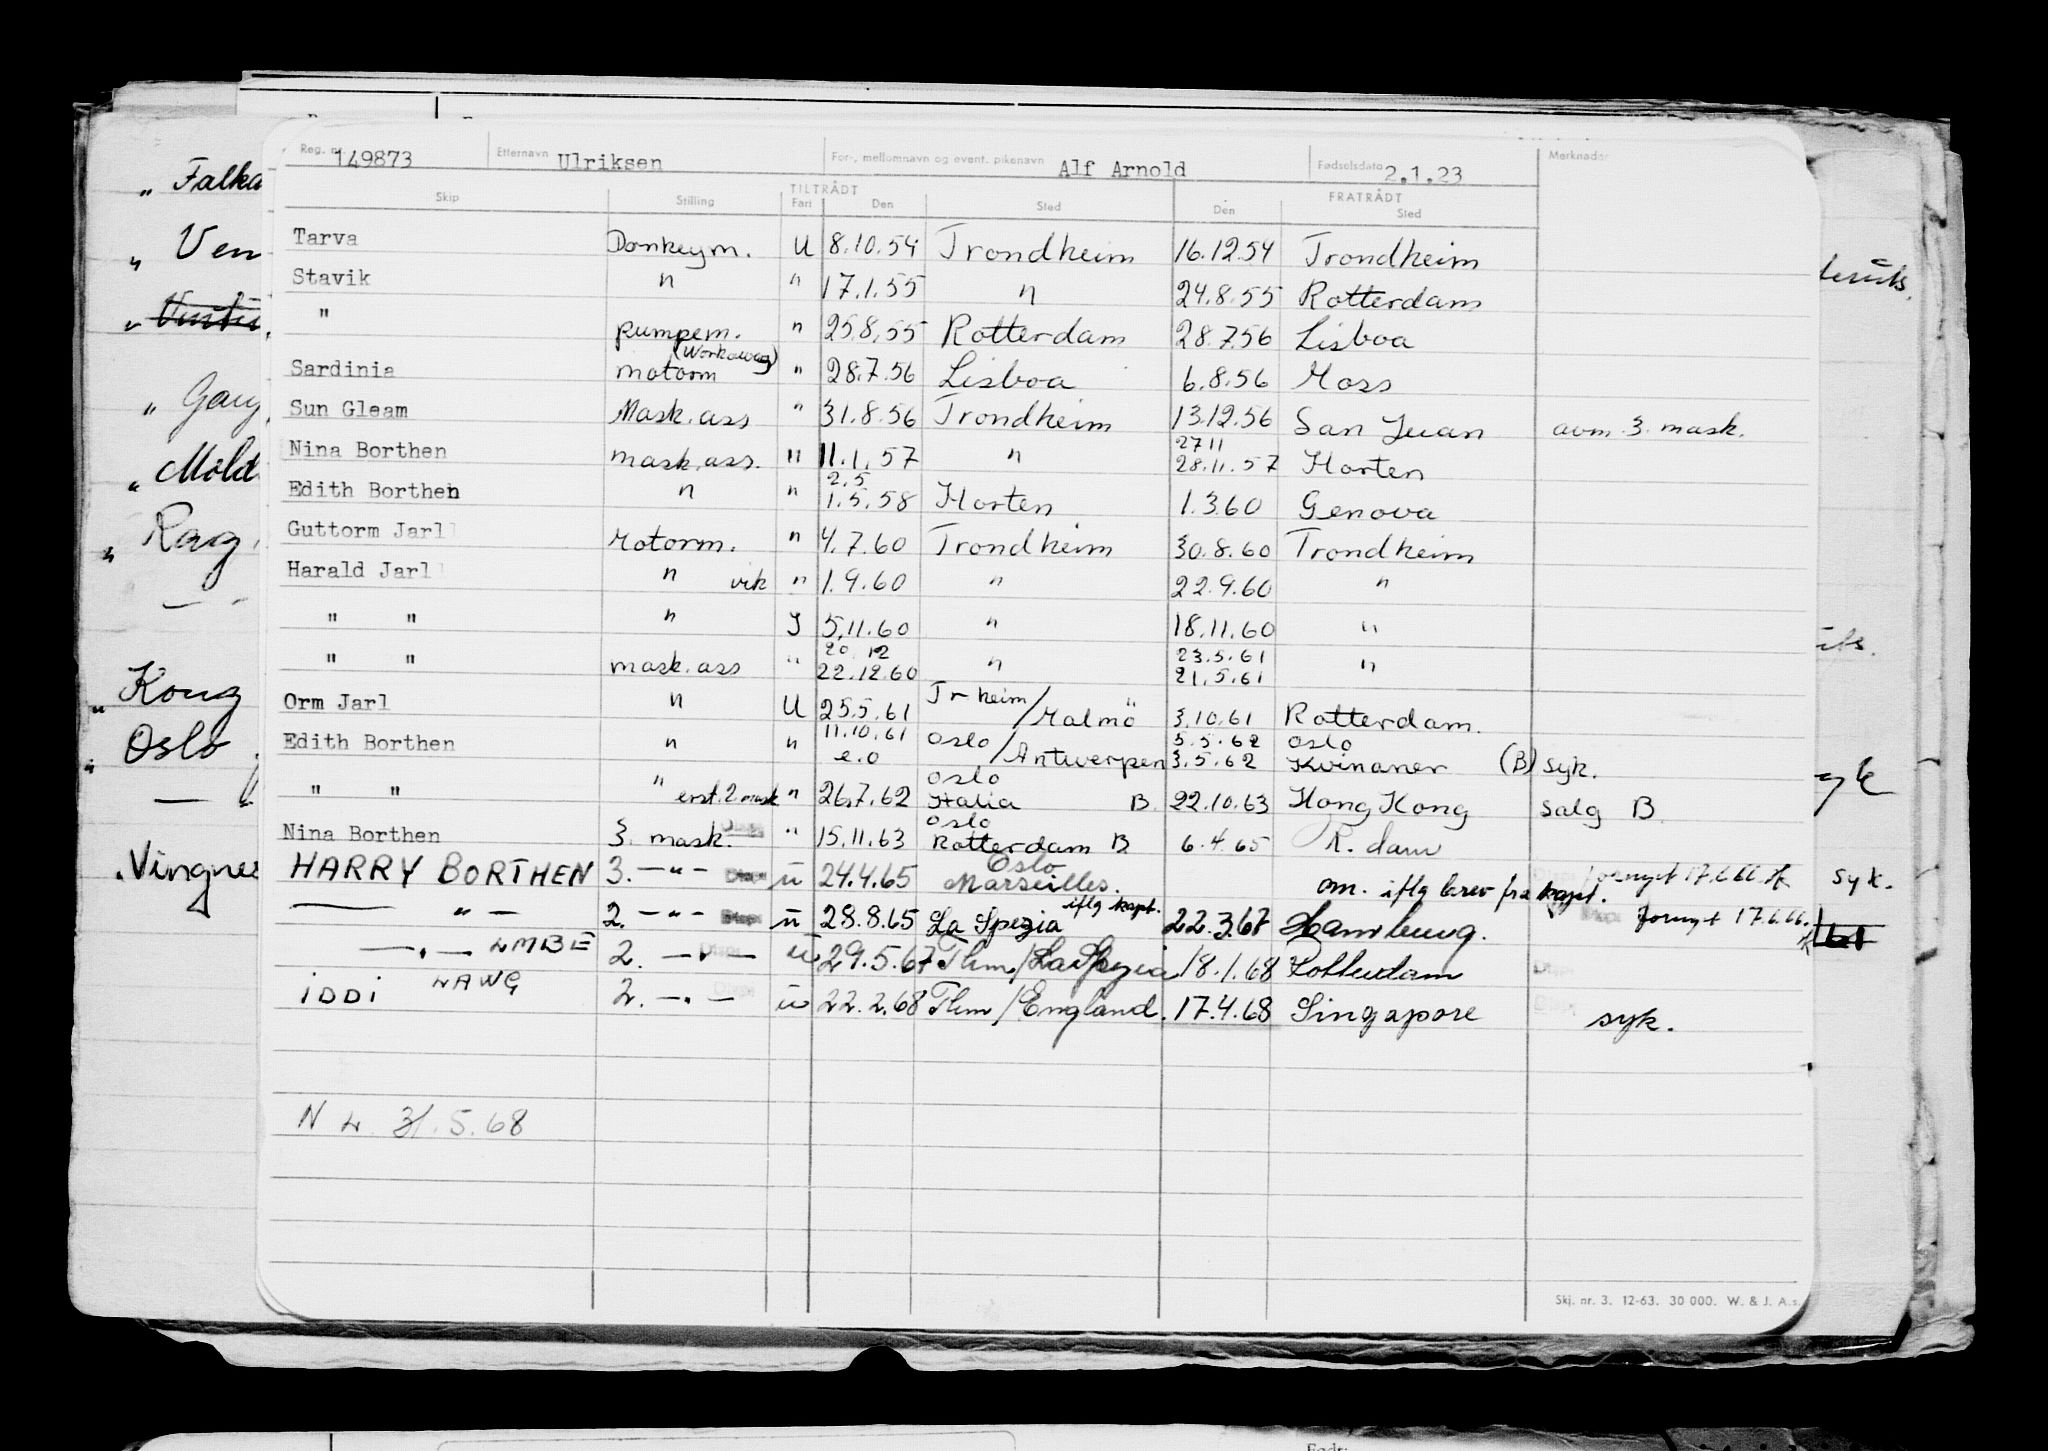 Reg. nr. 149873 Etternavn Ulriksen For-, mellomnavn og event. pikenavn Alf Arnold Fødselsdato 2.1.23 Merknader
TILTRÅDT FRATRÅDT
Skip Stilling Fart Den Sted Den Sted
Tarva Donkeym. U 8.10.54 Trondheim 16.12.54 Trondheim
Stavik " " 17.1.55 " 24.8.55 Rotterdam
" pumpem. " 25.8.55 Rotterdam 28.7.56 Lisboa
(Workaway)
Sardinia motorm " 28.7.56 Lisboa 6.8.56 Moss
Sun Gleam Mask.ass " 31.8.56 Trondheim 13.12.56 San Juan avm. 3. mask.
27 11
Nina Borthen mask.ass. " 11.1.57 " 28.11.57 Horten
2.5
Edith Borthen " " 1.5.58 Horten 1.3.60 Genova
Guttorm Jarl Motorm. " 4.7.60 Trondheim 30.8.60 Trondheim
Harald Jarl " vik " 1.9.60 " 22.9.60 "
" " " I 5.11.60 " 18.11.60 "
20.12 23.5.61
" " mask.ass " 22.12.60 " 21.5.61 "
Orm Jarl " U 25.5.61 Trheim/Malmö 3.10.61 Rotterdam.
11.10.61 Oslo 5.5.62 Oslo
Edith Borthen " " e.o /Antwerpen 3.5.62 Kvinaner (B) syk.
Oslo
" " " erst. 2 mask " 26.7.62 Italia B. 22.10.63 Hong Kong salg B.
Oslo
Nina Borthen 3. mask. " 15.11.63 Rotterdam B 6.4.65 R.dam
Oslo
HARRY BORTHEN 3. —"— Disp. u 24.4.65 Marseilles. om. iflg brev fra kapt. fornyet 17.6.66.
iflg kapt.
—— "— 2. —"— Disp. u 28.8.65 La Spezia 22.3.67 Hamburg. fornyet 17.6.66.
—"— LMBE 2. —"— Disp. u 29.5.67 Thm/La Spezia 18.1.68 Rotterdam
IDDI LAWG 2. —"— Disp. u 22.2.68 Thm/England. 17.4.68 Singapore syk.
N L. 31.5.68
Skj. nr. 3. 12-63. 30 000. W. & J. A.s.
" Falka
" Ven
" Mold
" Rag
" Kong
" Oslo
Vingnes
syk.